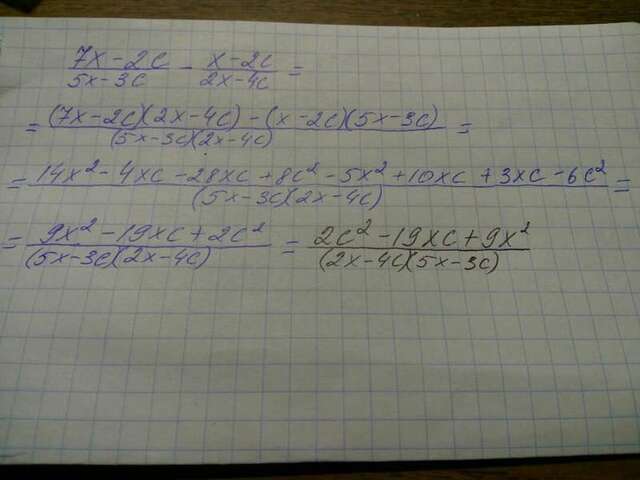 (7x-2c)/(5x-3c) - (x-2c)/(2x-4c) =
= ((7x-2c)(2x-4c) - (x-2c)(5x-3c))/((5x-3c)(2x-4c)) =
= (14x² - 4xc - 28xc + 8c² - 5x² + 10xc + 3xc - 6c²)/((5x-3c)(2x-4c)) =
= (9x² - 19xc + 2c²)/((5x-3c)(2x-4c)) = (2c² - 19xc + 9x²)/((2x-4c)(5x-3c))